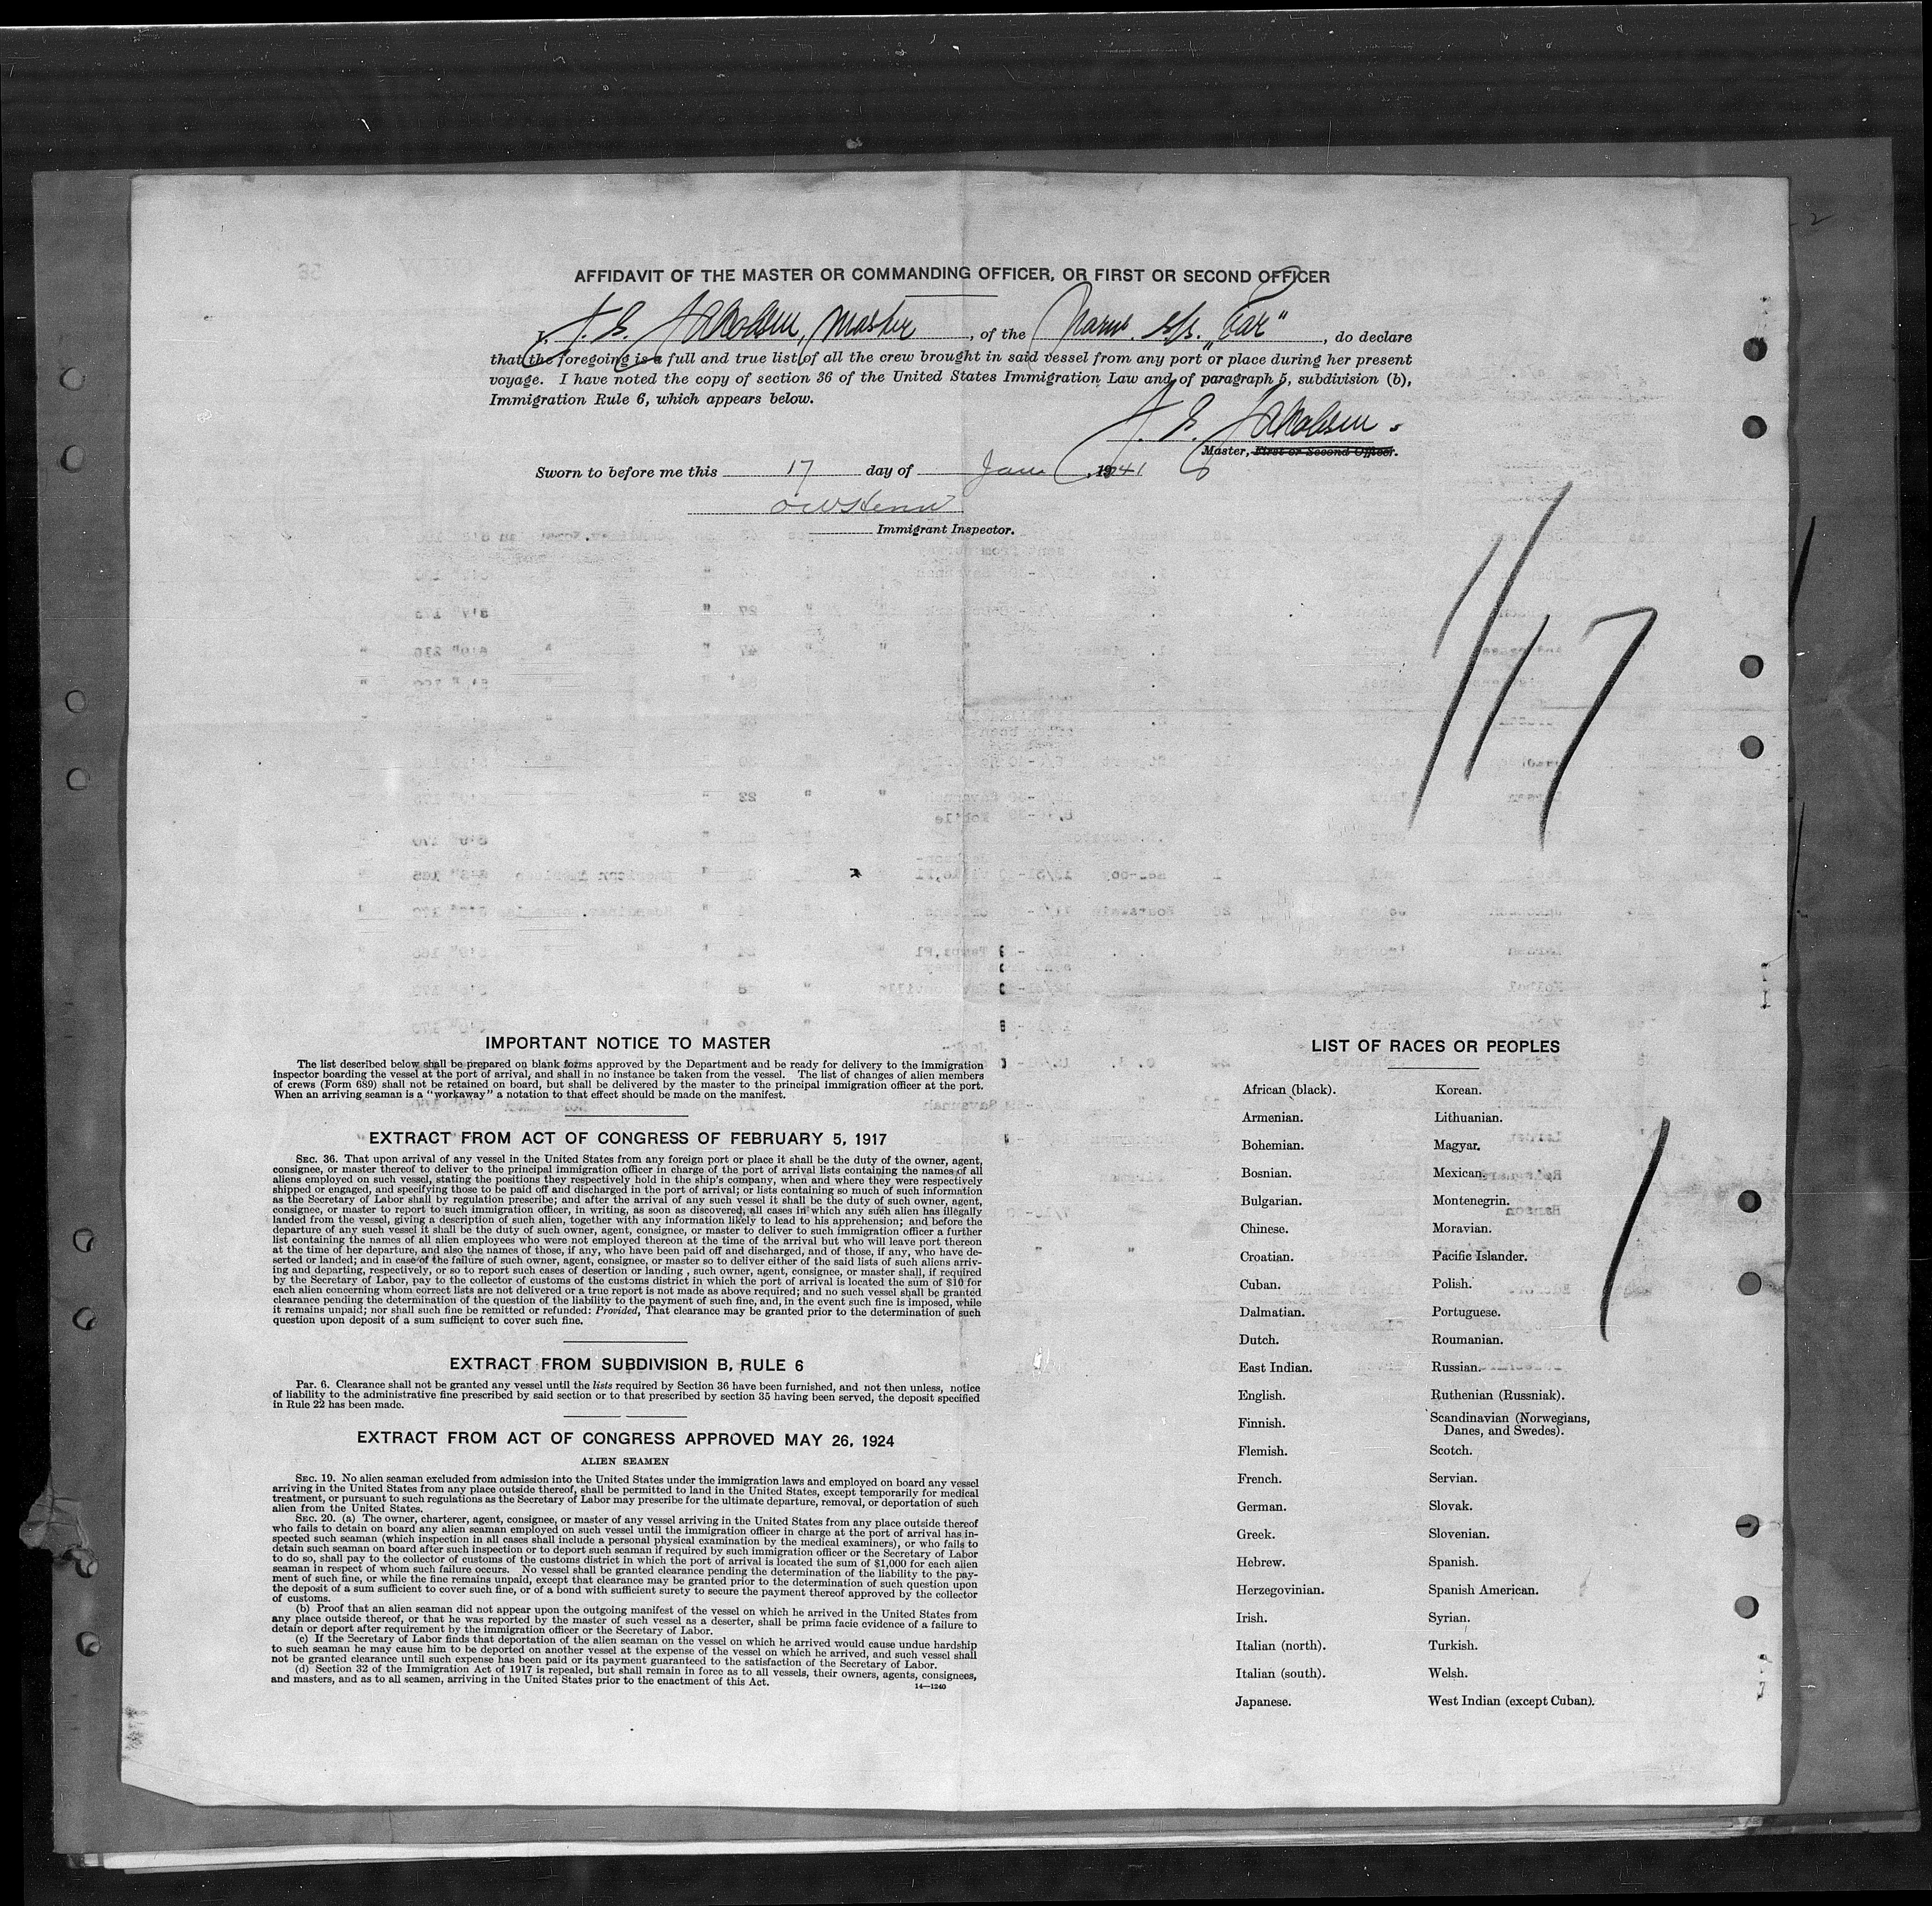 AFFIDAVIT OF THE MASTER OR COMMANDING OFFICER, OR FIRST OR SECOND OFFICER
I, J. E. Jakobsen, Master, of the Norw. s/s. „Far", do declare
that the foregoing is a full and true list of all the crew brought in said vessel from any port or place during her present
voyage. I have noted the copy of section 36 of the United States Immigration Law and of paragraph 5, subdivision (b),
Immigration Rule 6, which appears below.
J. E. Jakobsen.
Master, First or Second Officer.
Sworn to before me this 17 day of Jan, 1941
Immigrant Inspector.
1/17
IMPORTANT NOTICE TO MASTER
The list described below shall be prepared on blank forms approved by the Department and be ready for delivery to the immigration
inspector boarding the vessel at the port of arrival, and shall in no instance be taken from the vessel. The list of changes of alien members
of crews (Form 689) shall not be retained on board, but shall be delivered by the master to the principal immigration officer at the port.
When an arriving seaman is a "workaway" a notation to that effect should be made on the manifest.
EXTRACT FROM ACT OF CONGRESS OF FEBRUARY 5, 1917
SEC. 36. That upon arrival of any vessel in the United States from any foreign port or place it shall be the duty of the owner, agent,
consignee, or master thereof to deliver to the principal immigration officer in charge of the port of arrival lists containing the names of all
aliens employed on such vessel, stating the positions they respectively hold in the ship's company, when and where they were respectively
shipped or engaged, and specifying those to be paid off and discharged in the port of arrival; or lists containing so much of such information
as the Secretary of Labor shall by regulation prescribe; and after the arrival of any such vessel it shall be the duty of such owner, agent,
consignee, or master to report to such immigration officer, in writing, as soon as discovered, all cases in which any such alien has illegally
landed from the vessel, giving a description of such alien, together with any information likely to lead to his apprehension; and before the
departure of any such vessel it shall be the duty of such owner, agent, consignee, or master to deliver to such immigration officer a further
list containing the names of all alien employees who were not employed thereon at the time of the arrival but who will leave port thereon
at the time of her departure, and also the names of those, if any, who have been paid off and discharged, and of those, if any, who have de-
serted or landed; and in case of the failure of such owner, agent, consignee, or master so to deliver either of the said lists of such aliens arriv-
ing and departing, respectively, or so to report such cases of desertion or landing , such owner, agent, consignee, or master shall, if required
by the Secretary of Labor, pay to the collector of customs of the customs district in which the port of arrival is located the sum of $10 for
each alien concerning whom correct lists are not delivered or a true report is not made as above required; and no such vessel shall be granted
clearance pending the determination of the question of the liability to the payment of such fine, and, in the event such fine is imposed, while
it remains unpaid; nor shall such fine be remitted or refunded: Provided, That clearance may be granted prior to the determination of such
question upon deposit of a sum sufficient to cover such fine.
EXTRACT FROM SUBDIVISION B, RULE 6
Par. 6. Clearance shall not be granted any vessel until the lists required by Section 36 have been furnished, and not then unless, notice
of liability to the administrative fine prescribed by said section or to that prescribed by section 35 having been served, the deposit specified
in Rule 22 has been made.
EXTRACT FROM ACT OF CONGRESS APPROVED MAY 26, 1924
ALIEN SEAMEN
SEC. 19. No alien seaman excluded from admission into the United States under the immigration laws and employed on board any vessel
arriving in the United States from any place outside thereof, shall be permitted to land in the United States, except temporarily for medical
treatment, or pursuant to such regulations as the Secretary of Labor may prescribe for the ultimate departure, removal, or deportation of such
alien from the United States.
SEC. 20. (a) The owner, charterer, agent, consignee, or master of any vessel arriving in the United States from any place outside thereof
who fails to detain on board any alien seaman employed on such vessel until the immigration officer in charge at the port of arrival has in-
spected such seaman (which inspection in all cases shall include a personal physical examination by the medical examiners), or who fails to
detain such seaman on board after such inspection or to deport such seaman if required by such immigration officer or the Secretary of Labor
to do so, shall pay to the collector of customs of the customs district in which the port of arrival is located the sum of $1,000 for each alien
seaman in respect of whom such failure occurs. No vessel shall be granted clearance pending the determination of the liability to the pay-
ment of such fine, or while the fine remains unpaid, except that clearance may be granted prior to the determination of such question upon
the deposit of a sum sufficient to cover such fine, or of a bond with sufficient surety to secure the payment thereof approved by the collector
of customs.
(b) Proof that an alien seaman did not appear upon the outgoing manifest of the vessel on which he arrived in the United States from
any place outside thereof, or that he was reported by the master of such vessel as a deserter, shall be prima facie evidence of a failure to
detain or deport after requirement by the immigration officer or the Secretary of Labor.
(c) If the Secretary of Labor finds that deportation of the alien seaman on the vessel on which he arrived would cause undue hardship
to such seaman he may cause him to be deported on another vessel at the expense of the vessel on which he arrived, and such vessel shall
not be granted clearance until such expense has been paid or its payment guaranteed to the satisfaction of the Secretary of Labor.
(d) Section 32 of the Immigration Act of 1917 is repealed, but shall remain in force as to all vessels, their owners, agents, consignees,
and masters, and as to all seamen, arriving in the United States prior to the enactment of this Act.
14—1240
LIST OF RACES OR PEOPLES
African (black).
Armenian.
Bohemian.
Bosnian.
Bulgarian.
Chinese.
Croatian.
Cuban.
Dalmatian.
Dutch.
East Indian.
English.
Finnish.
Flemish.
French.
German.
Greek.
Hebrew.
Herzegovinian.
Irish.
Italian (north).
Italian (south).
Japanese.
Korean.
Lithuanian.
Magyar.
Mexican.
Montenegrin.
Moravian.
Pacific Islander.
Polish.
Portuguese.
Roumanian.
Russian.
Ruthenian (Russniak).
Scandinavian (Norwegians,
Danes, and Swedes).
Scotch.
Servian.
Slovak.
Slovenian.
Spanish.
Spanish American.
Syrian.
Turkish.
Welsh.
West Indian (except Cuban).